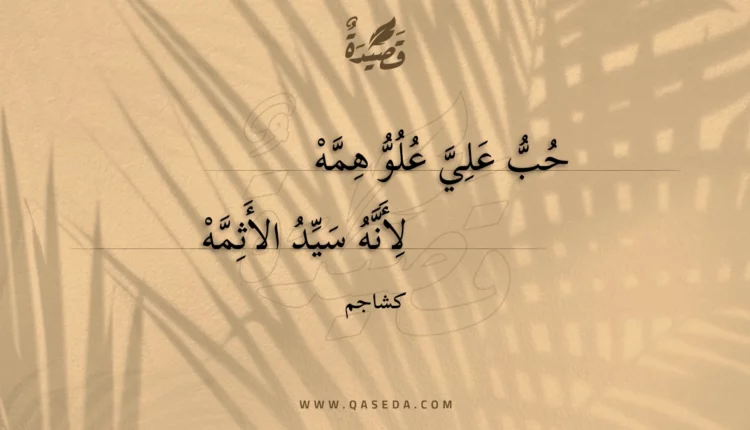 قَصِيْدَةٌ
حُبُّ عَلِيَّ عُلُوُّ هِمَّهْ
لِأَنَّهُ سَيِّدُ الأَثِمَّهْ
كشاجم
WWW.QASEDA.COM